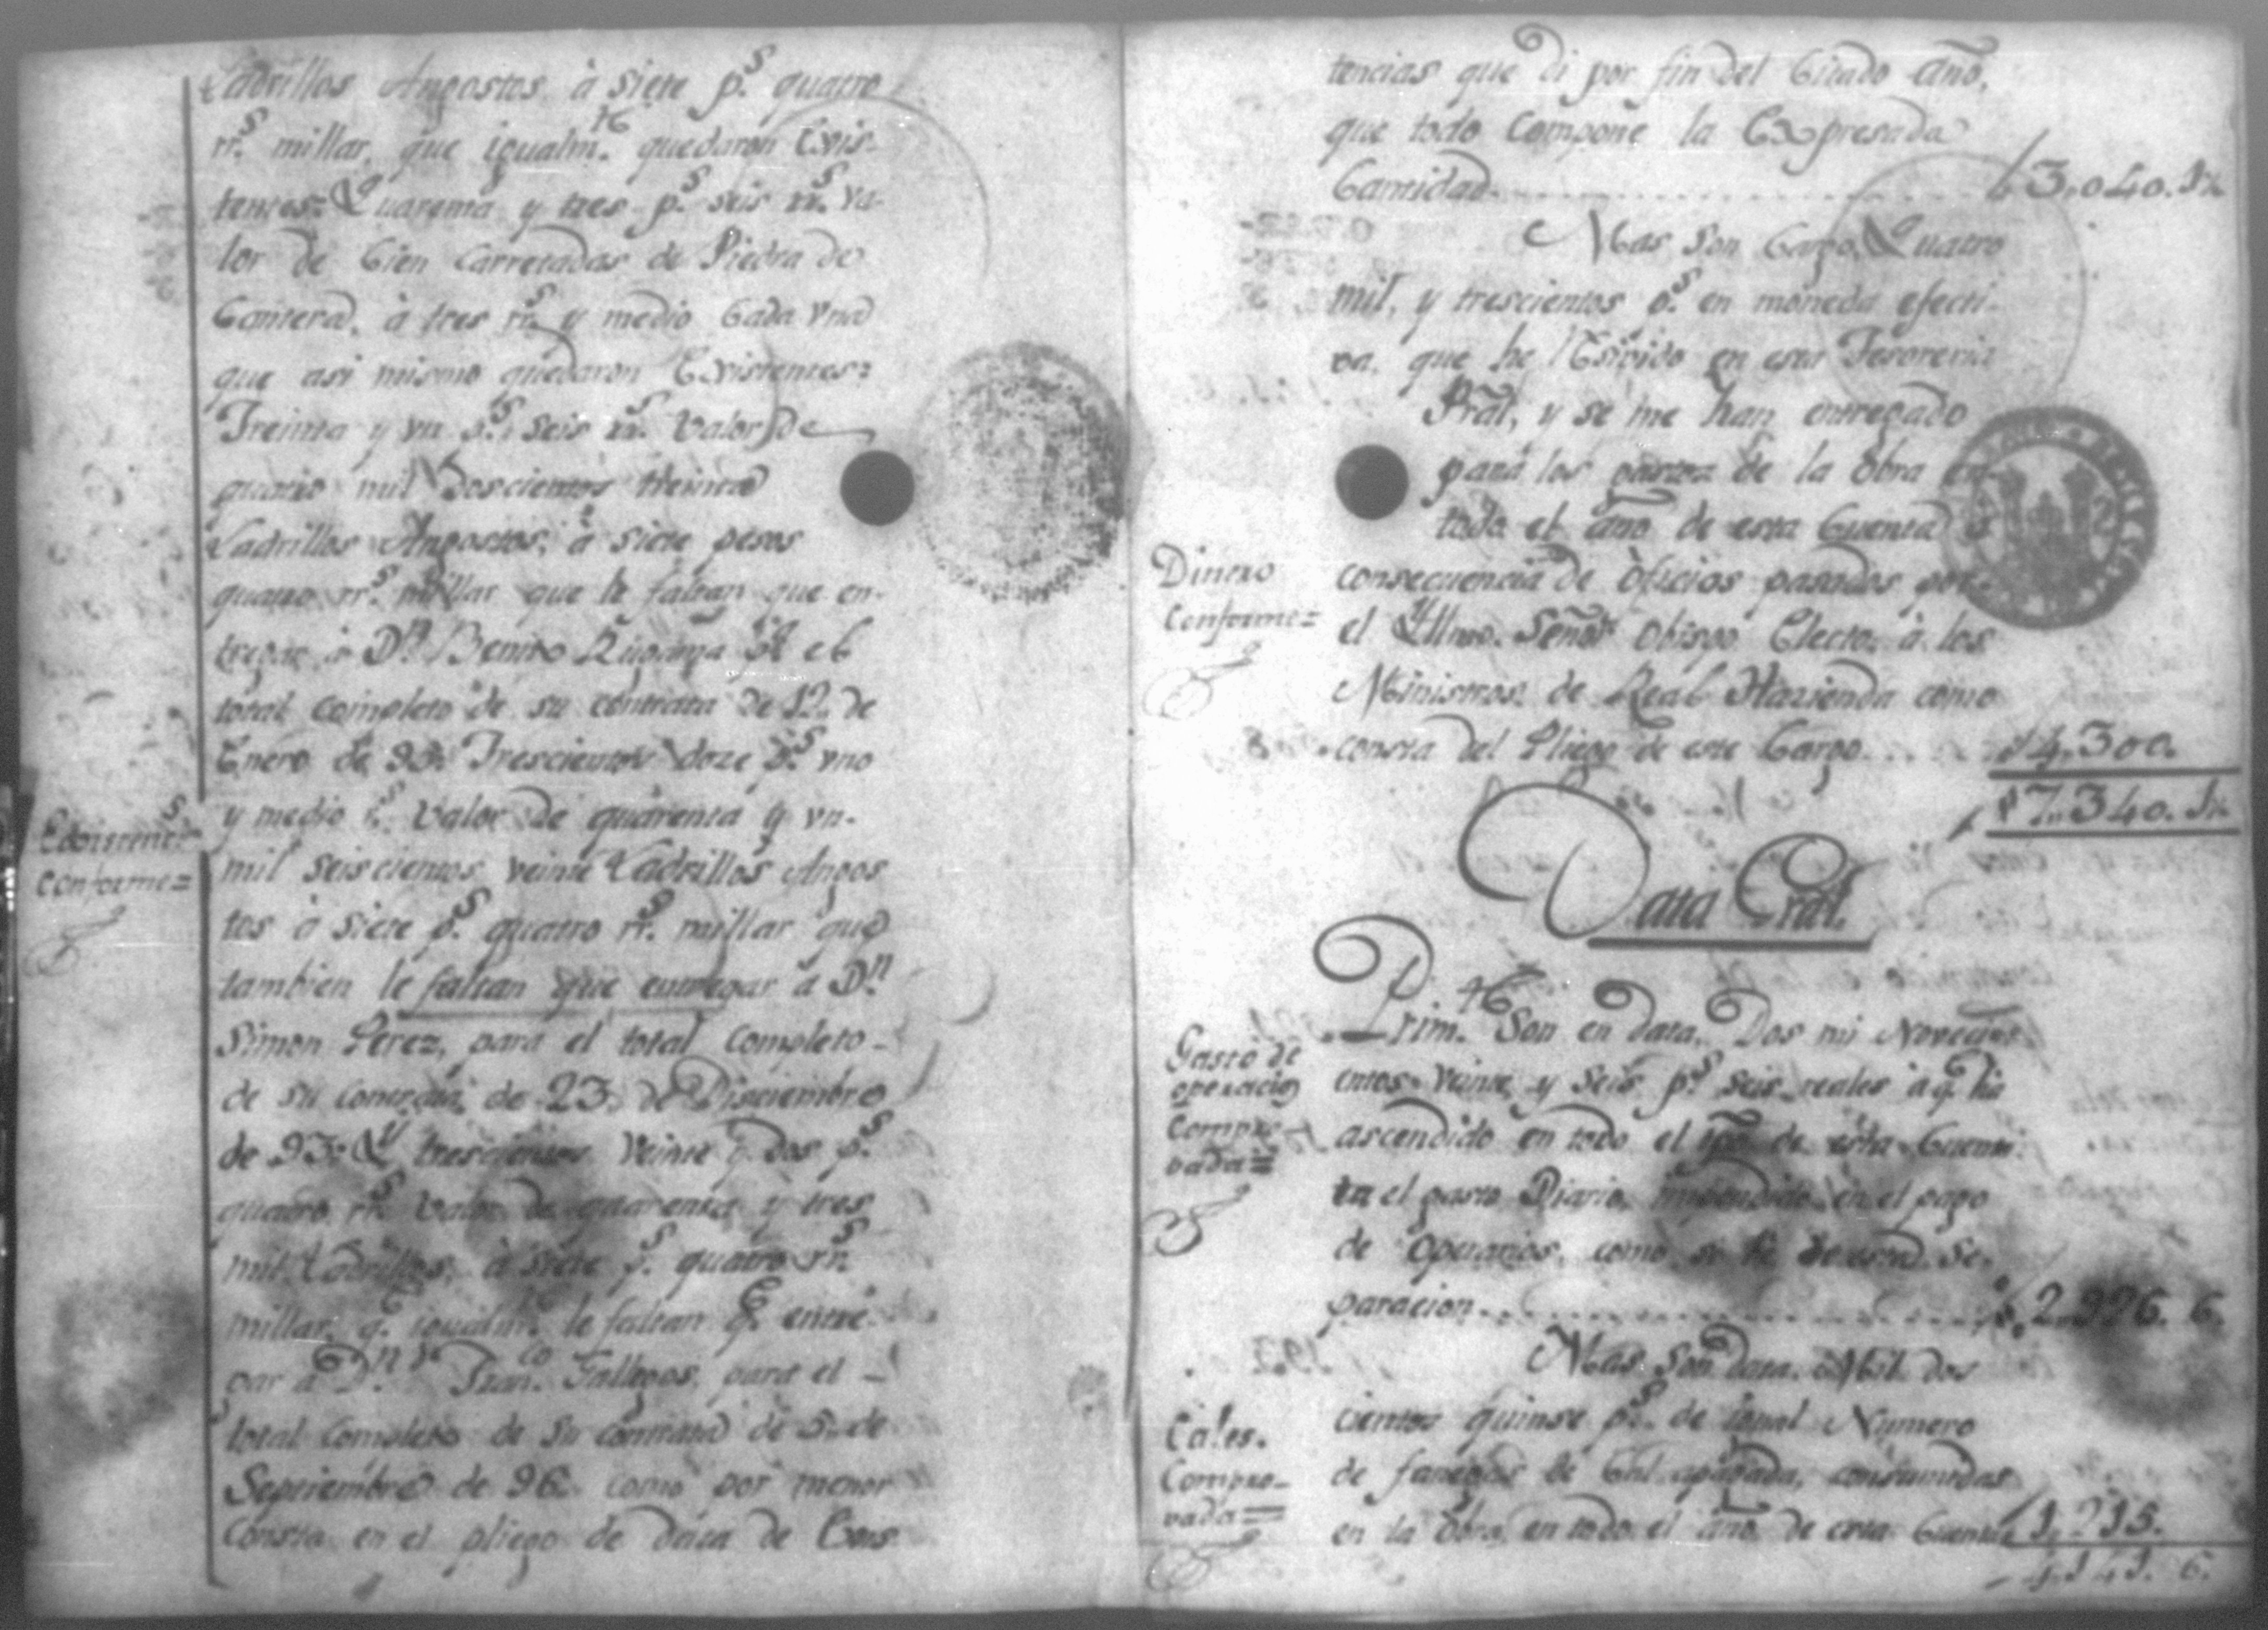 Ladrillos Angostos, à siete p.s quatro
rr.s millar, que igualm.te quedaron Exis-
tentes: Quarenta y tres p.s seis rr.s va-
lor de Cien Carretadas de Piedra de
Cantera, à tres rr.s y medio Cada vna
que asi mismo quedaron Existentes:
Treinta y vn p.s seis rr.s Valor de
quatro mil Doscientos treinta
Ladrillos Angostos, à siete pesos
quatro rr.s millar que le faltan que en-
tregar à D.n Benito p.a el
total completo de su contrata de 12. de
Enero de 93: Trescientos doze p.s vno
y medio r.s Valor de quarenta y vn
Existenci.s
conforme=
mil seiscientos veinte Ladrillos Angos
tos à siete p.s quatro rr.s millar que
tambien le faltan que entregar à D.n
Simon Perez, para el total completo
de su contrata de 23. de Disciembre
de 93: Y trescientos veinte y dos p.s
quatro rr.s Valor de quarenta y tres
mil Ladrillos, à siete p.s quatro rr.s
millar, q.e igualm.te le faltan q.e entre-
gar à D.n Fran.co Gallegos, para el
total completo de su contrata de 5. de
Septiembre de 96. como por menor
Consta en el pliego de data de Exis-
tencias que di por fin del Citado año,
que todo Compone la Expresada
Cantidad. 3.040. 1½
Mas son Cargo, Quatro
mil, y trescientos p.s en moneda efecti-
va, que he resivido en esta Tesoreria
Pral, y se me han entregado
para los gastos de la Obra en
todo el año de esta Cuenta à
Dinero
conforme=
consecuencia de oficios pasados por
el Yllmo. Señor Obispo Electo, à los
Ministros de Real Hazienda como
consta del Pliego de este Cargo. 4.300.
7.340. 1½
Data Gral.
Prim.te Son en data, Dos mil Noveci-
Gasto de
operacio
Compro-
vada=
entos veinte y seis p.s seis reales à q.e ha
ascendido en todo el año de esta Cuenta
en el gasto Diario, impendido en el pago
de Operarios, como se de esta Se-
paracion. 2.926. 6.
Mas son data. Mil dos
cientos quinse p.s de igual Numero
Cales.
Compro-
vada=
de fanegas de Cal apagada, consumidas
en la Obra, en todo el año de esta Cuenta 1.215.
4.141. 6.